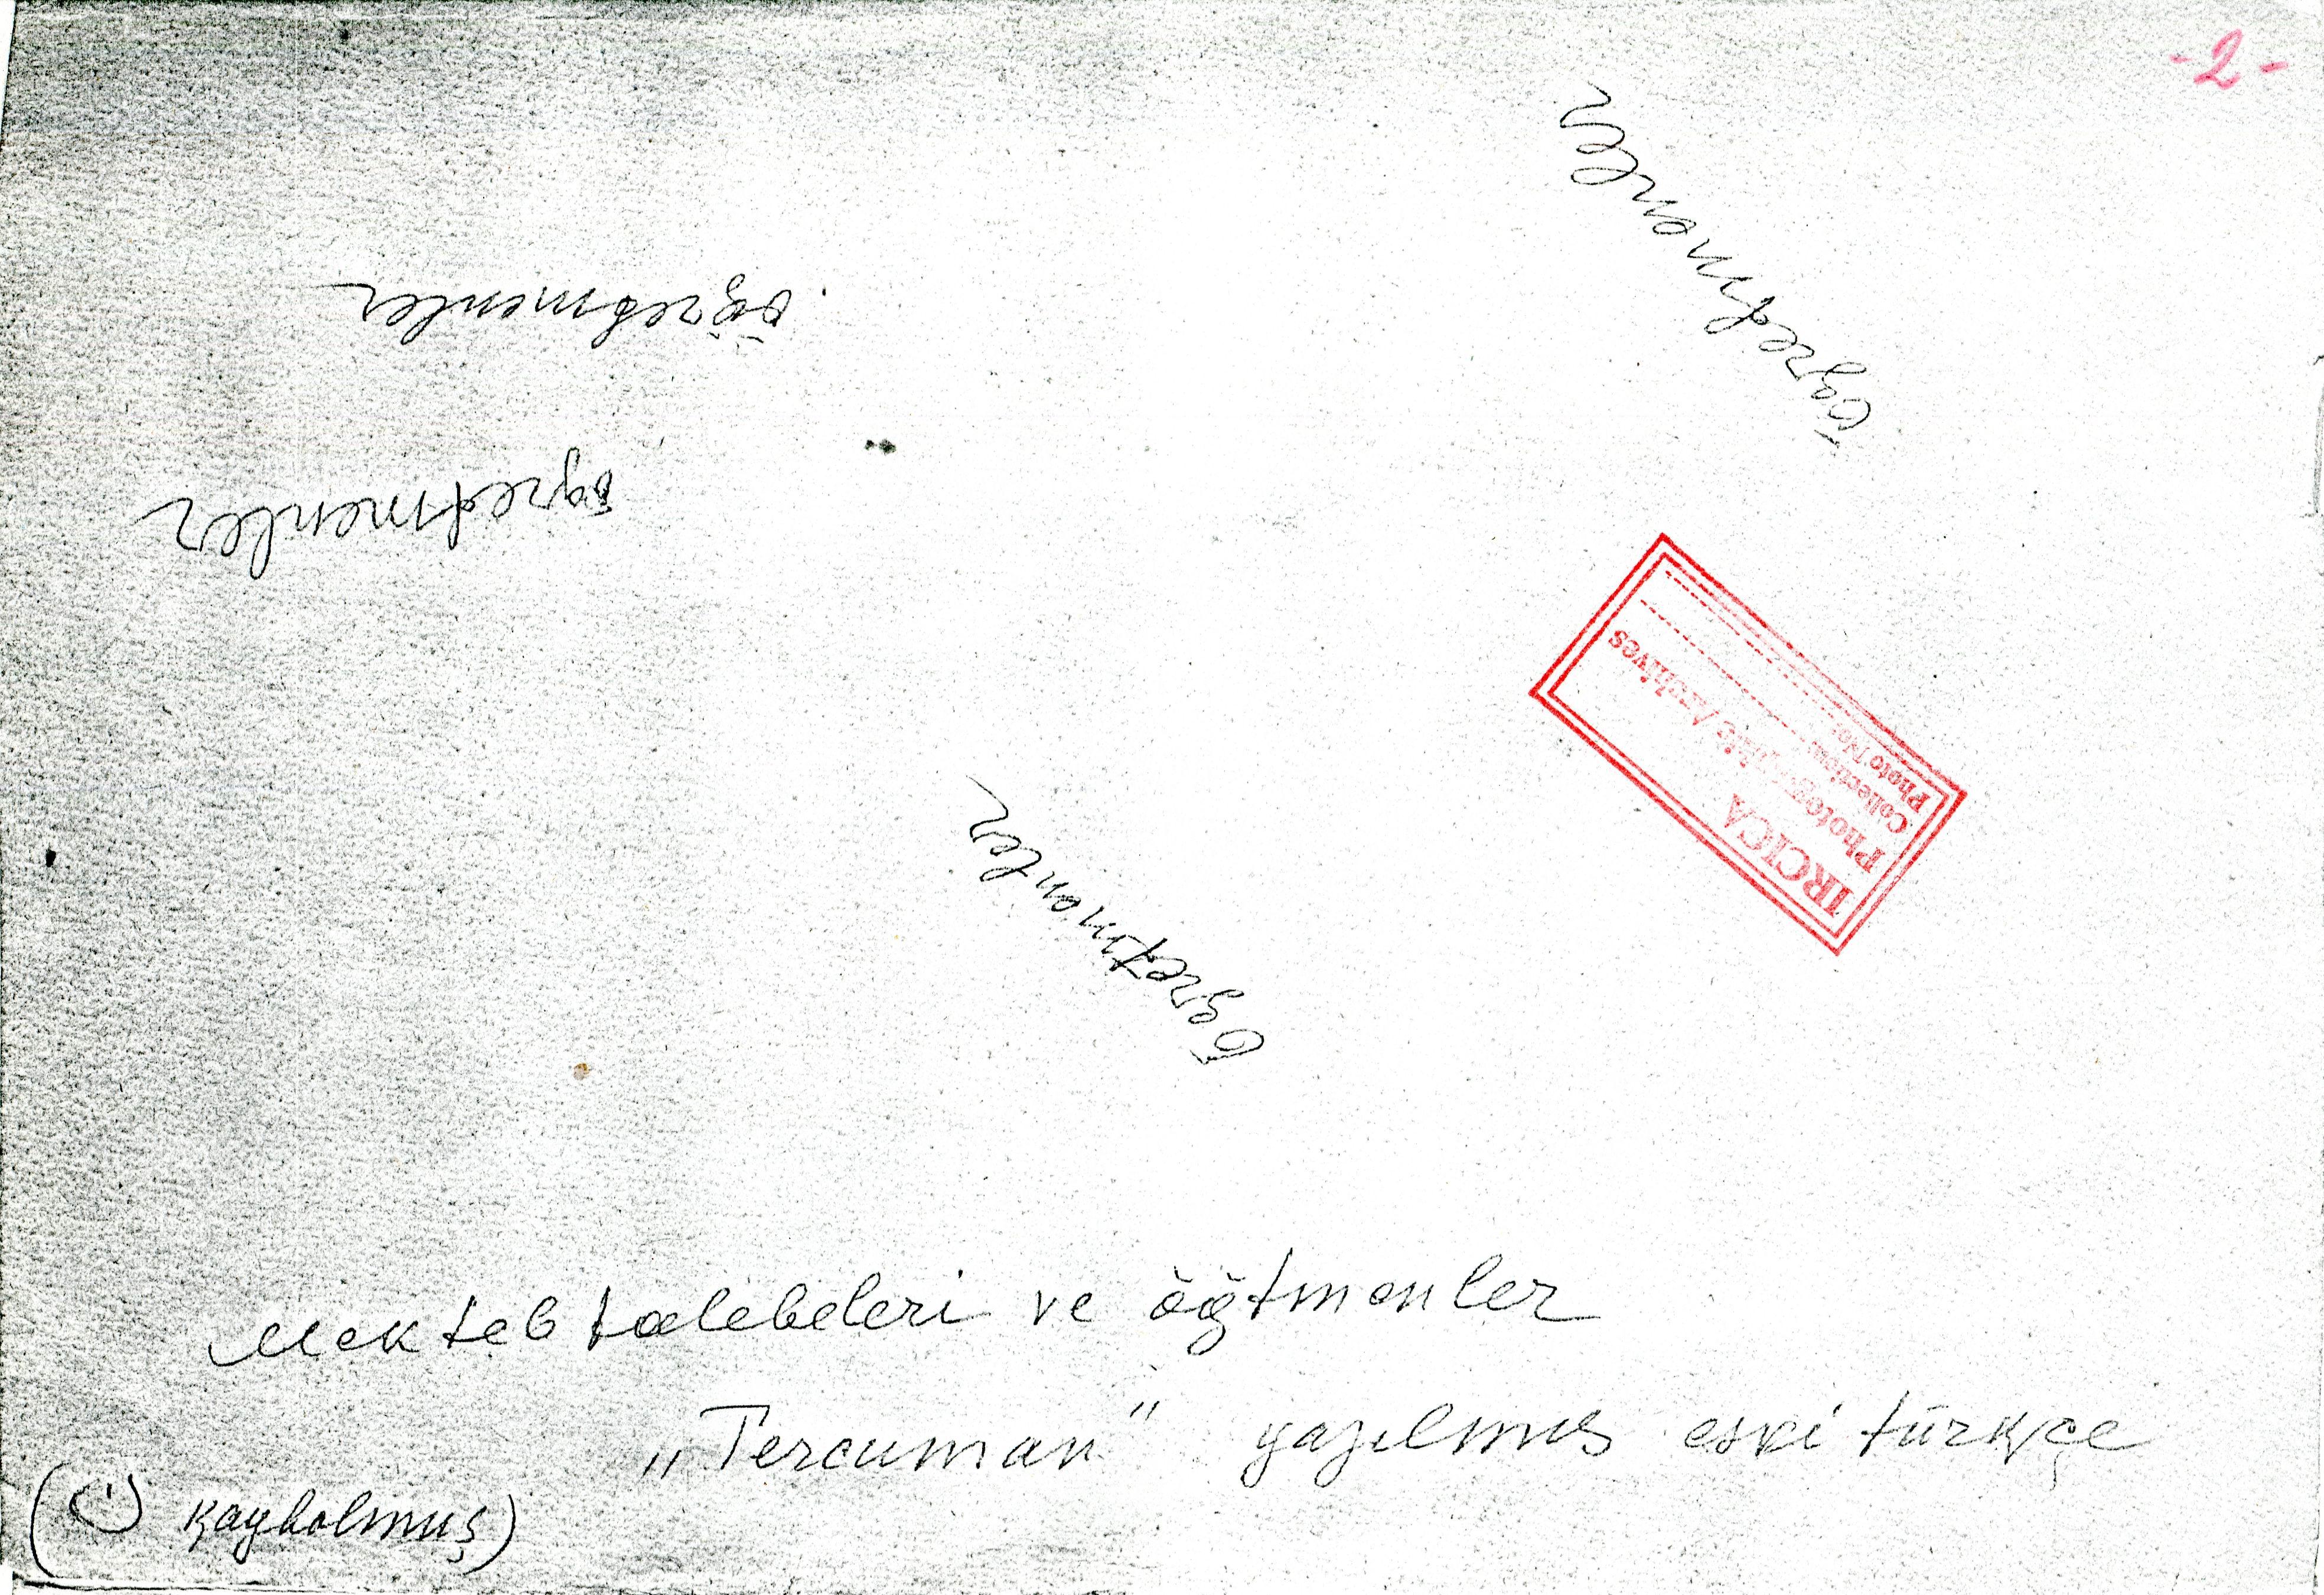 -2-
Öğretmenler
öğretmenler
öğretmenler
IRCICA
Photographic Archives
Collection:
Photo No:
Öğretmenler
Mekteb talebeleri ve öğtmenler
„Tercuman" yazılmıs eski türkçe
kaybolmuş)